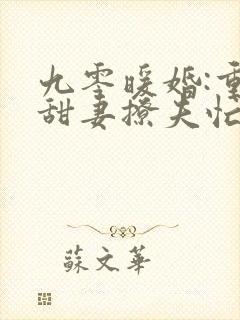 九零暖婚:重
甜妻撩夫忙
蘇文華